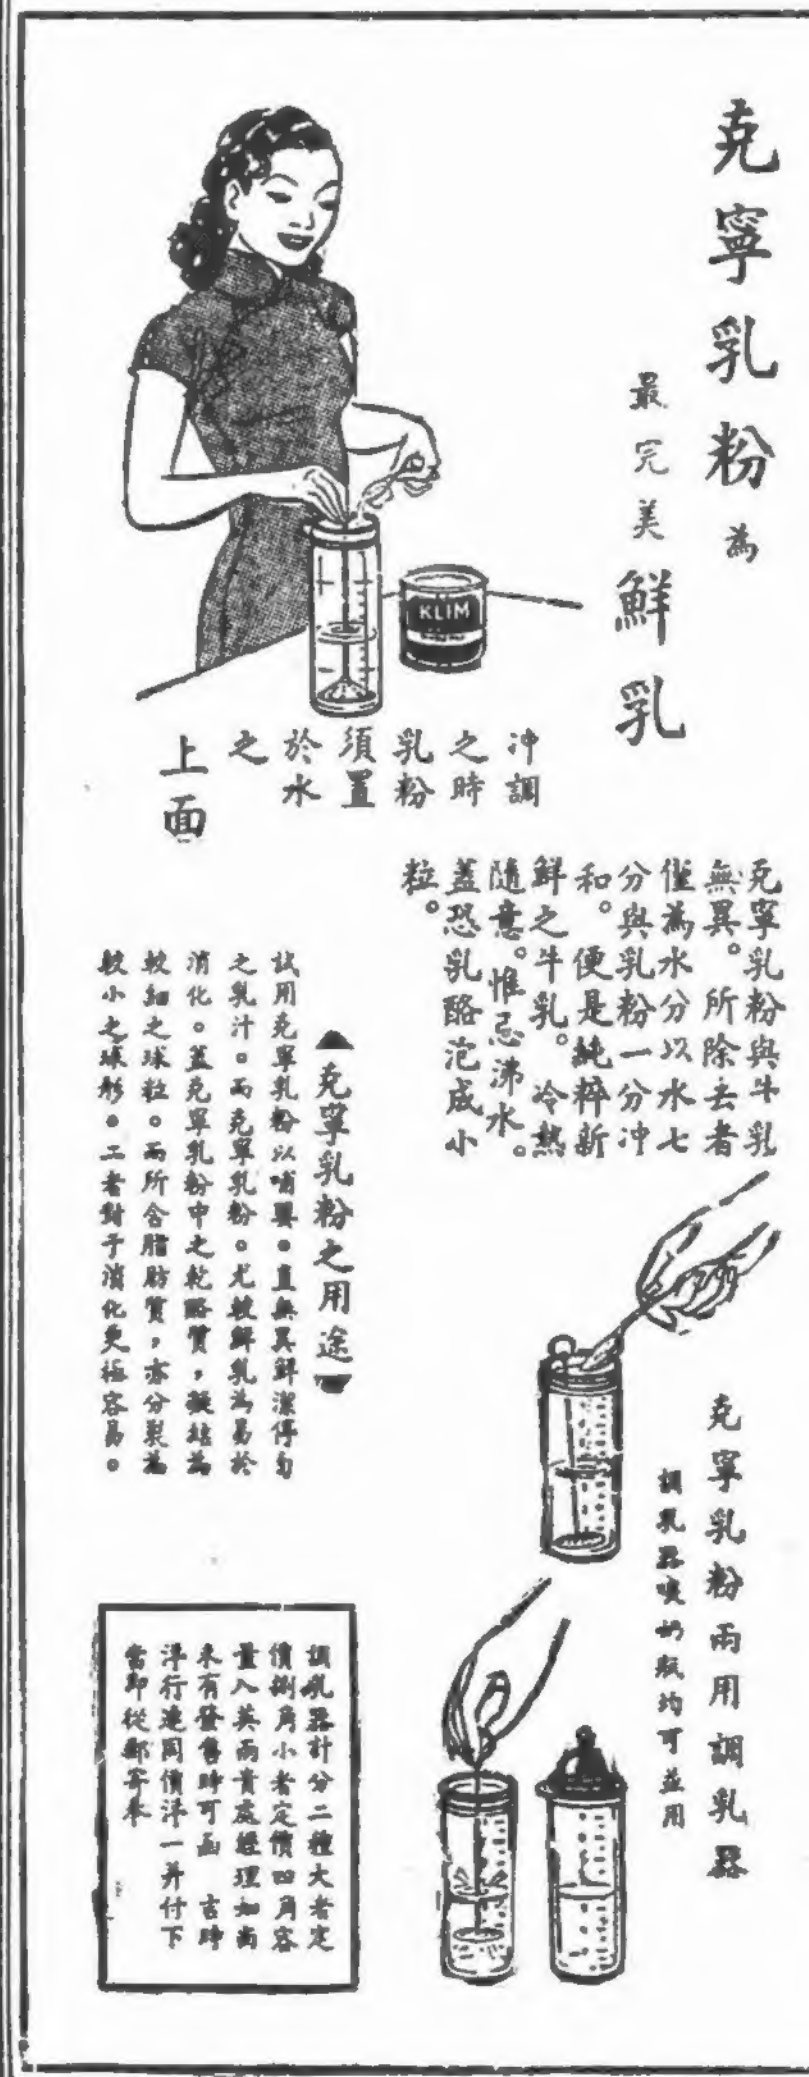 克寧乳粉為
最完美鮮乳
KLIM
冲調
之時
乳粉
須置
於水
之
上面
克寧乳粉與牛乳
無異。所除去者
僅為水分以水七
分與乳粉一分冲
和。便是純粹新
鮮之牛乳。冷熱
隨意。惟忌沸水。
蓋恐乳酪泡成小
粒。
克寧乳粉之用途
試用克寧乳粉以哺嬰。直無異鮮潔停勻
之乳汁。而克寧乳粉。尤較鮮乳為易於
消化。蓋克寧乳粉中之乾酪質,凝結為
較細之球粒。而所含脂肪質,亦分裂為
較小之球形。二者對于消化更極容易。
克寧乳粉兩用調乳器
調乳器喂奶瓶均可並用
調乳器計分二種大者定
價捌角小者定價四角容
量八英兩貴處經理如尚
未有發售時可函 吉時
洋行連同價洋一并付下
當即從郵寄奉